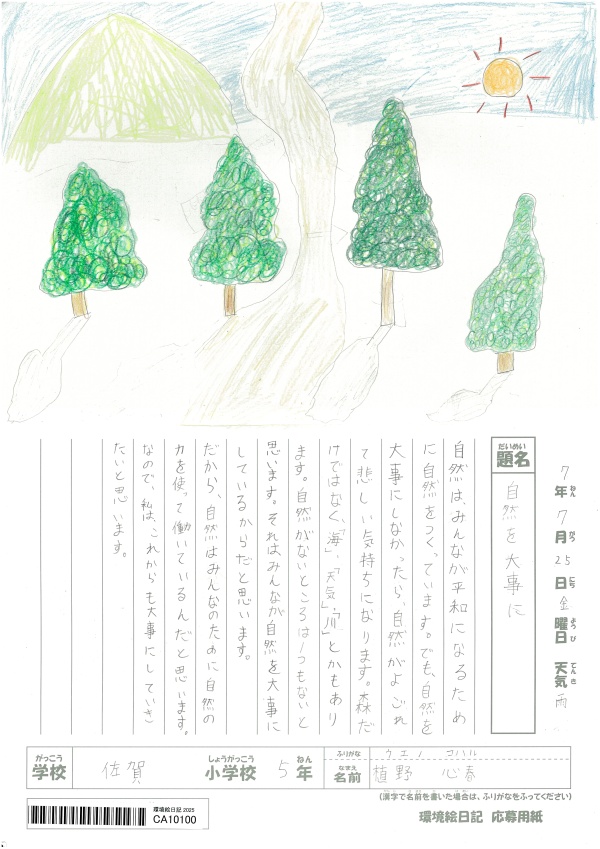 7年ねん7月がつ25日にち金曜日ようび 天気てんき雨
だいめい
題名
自然を大事に
自然は、みんなが平和になるため
に自然をつくっています。でも、自然を
大事にしなかったら、自然がよごれ
て悲しい気持ちになります。森だ
けではなく、「海」、「天気」、「川」とかもあり
ます。自然がないところは一つもないと
思います。それはみんなが自然を大事に
しているからだと思います。
だから、自然はみんなのために自然の
力を使って働いているんだと思います。
なので、私は、これからも大事にしていき
たいと思います。
がっこう しょうがっこう ねん ふりがな ウエノ コハル
学校 佐賀 小学校 5年 なまえ 名前 植野 心春
(漢字で名前を書いた場合は、ふりがなをふってください)
環境絵日記 2025
CA10100
環境絵日記 応募用紙